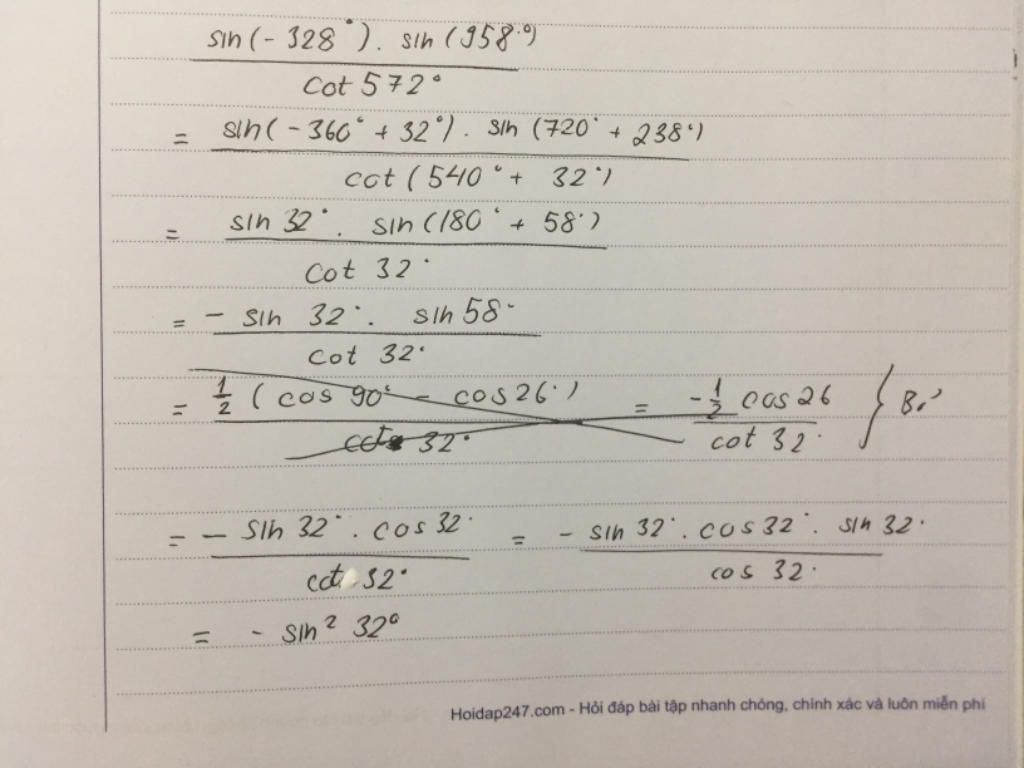 sin(-328°). sin(958°)
cot 572°
= sin(-360° + 32°). sin(720° + 238°)
cot(540° + 32°)
= sin 32°. sin(180° + 58°)
cot 32°
= - sin 32°. sin 58°
cot 32°
= 1/2 (cos 90° - cos 26°) = -1/2 cos 26
cot 32° cot 32°
= - sin 32°. cos 32° = - sin 32°. cos 32°. sin 32°
cot 32° cos 32°
= - sin² 32°
Hoidap247.com - Hỏi đáp bài tập nhanh chóng, chính xác và luôn miễn phí